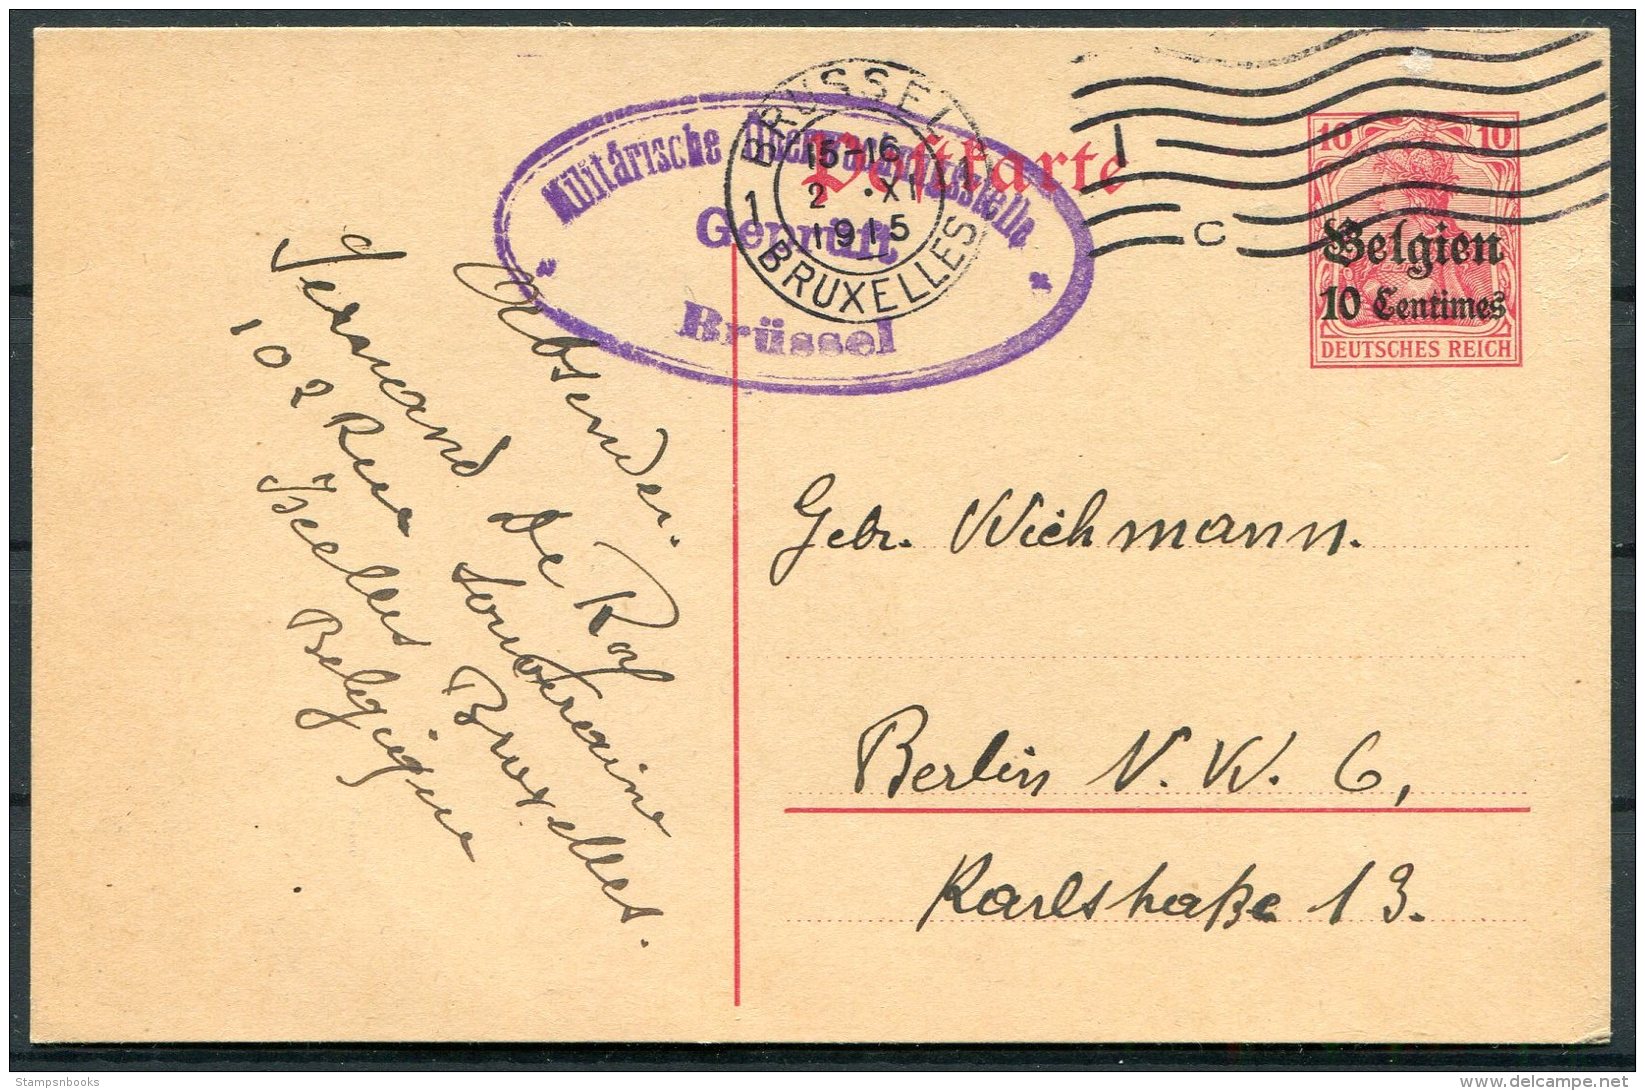 BRÜSSEL
15-16
2 .XI
1915
1
BRUXELLES
1
C
Militärische Überwachungsstelle
Geprüft
Brüssel
Postkarte
10 10
Belgien
10 Centimes
DEUTSCHES REICH
Absender.
Fernand De Roy
102 Rue Souveraine
Ixelles Bruxelles.
Belgique
Gebr. Wichmann.
Berlin N. W. 6,
Karlstraße 13.
Stampsnbooks
delcampe.net